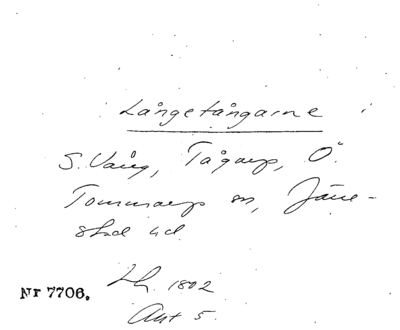 Långetångarne
S. Vång, Tågarp, Ö.
Tommarp sn, Järre-
stad hd.
Lh. 1802
Nr 7706.
Akt 5.